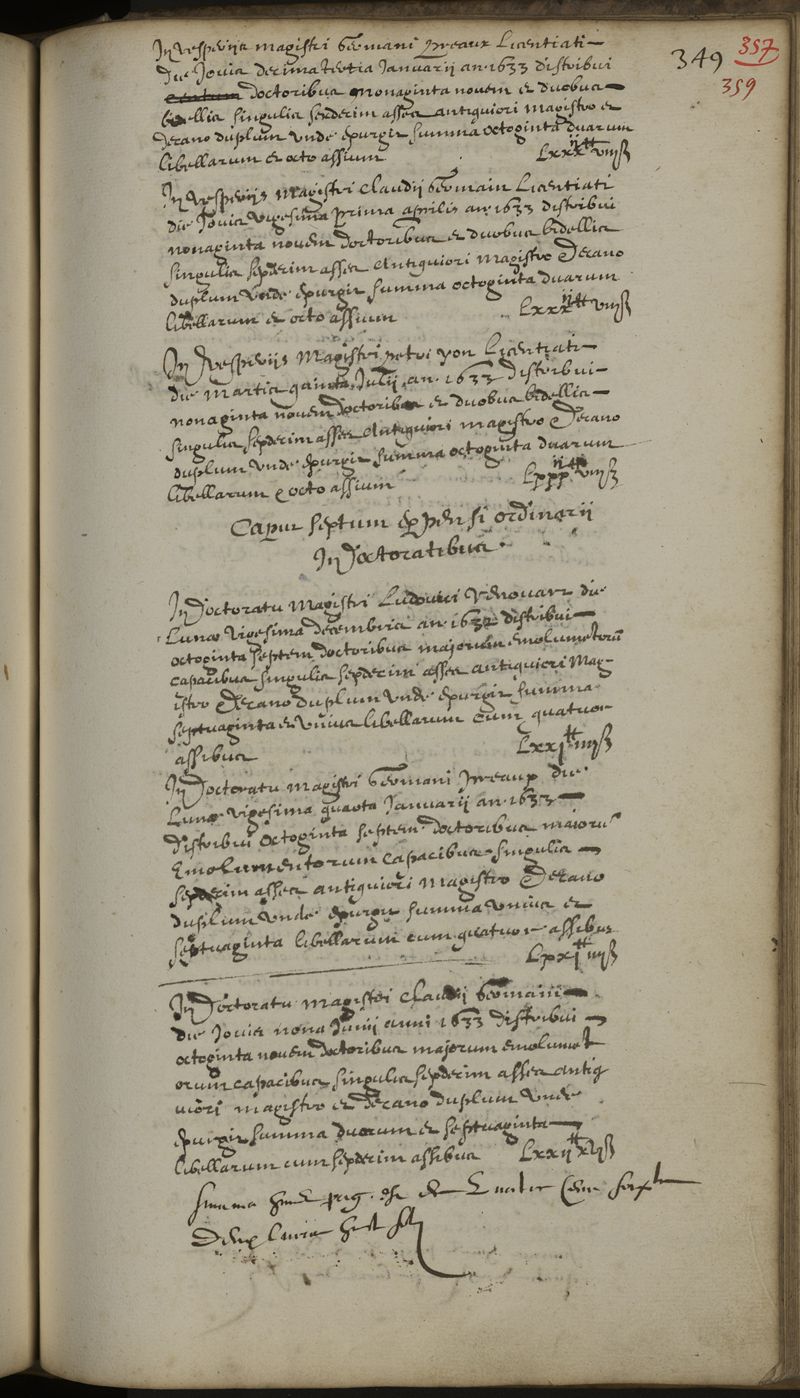 349 357
359
In vesperiis magistri Germani preaux Licentiati
die Jovis decima tertia Januarij an. 1633 distribui
centum doctoribus nonaginta novem et duobus
bedellis singulis sexdecim asses antiquiori magistro et
Decano duplum unde exurgit summa octoginta duarum
libellarum et octo assium Lxxxij^tt viijß
In vesperijs Magistri Claudij Germain Licentiati
die Jovis vigesima prima aprilis an. 1633 distribui
nonaginta novem doctoribus et duobus bedellis
singulis sexdecim asses Antiquiori magistro Decano
duplum Unde exurgit summa octoginta duarum
libellarum et octo assium Lxxxij^tt viijß
In vesperijs Magistri petri yon Licentiati
die Martis quinta Julij an. 1633 distribui
nonaginta novem doctoribus et duobus bedellis
singulis sexdecim asses Antiquiori magistro Decano
duplum unde exurgit summa octoginta duarum
libellarum et octo assium Lxxxij^tt viijß
Caput septum expensi ordinarii
In doctoratibus.
In Doctoratu Magistri Ludovici Renouart die
Lunae vigesima decembris an. 1632 distribui
octoginta septem doctoribus majorum emolumetorū
capacibus singulis sexdecim asses antiquiori Mag-
istro Decano duplum unde exurgit summa
septuaginta et unius libellarum cum quatuor
assibus Lxxj^tt iiijß
In Doctoratu magistri Germani preaux die
Lunae vigesima quarta Januarij an. 1633
distribui octoginta septem doctoribus maiorū
Emolumentorum capacibus singulis
sexdecim asses antiquiori Magistro Decano
duplum unde exurgit summa unius et
septuaginta libellarum cum quatuor assibus
Lxxj^tt iiijß
In Doctoratu magistri Claudij Germain
die Jovis nona Junij anni 1633 distribui
octoginta novem doctoribus majorum emolument
orum capacibus singulis sexdecim asses antiq
uiori magistro et decano duplum unde
exurgit summa duarum et septuaginta
libellarum cum sexdecim assibus Lxxij^tt xvjß
Summa